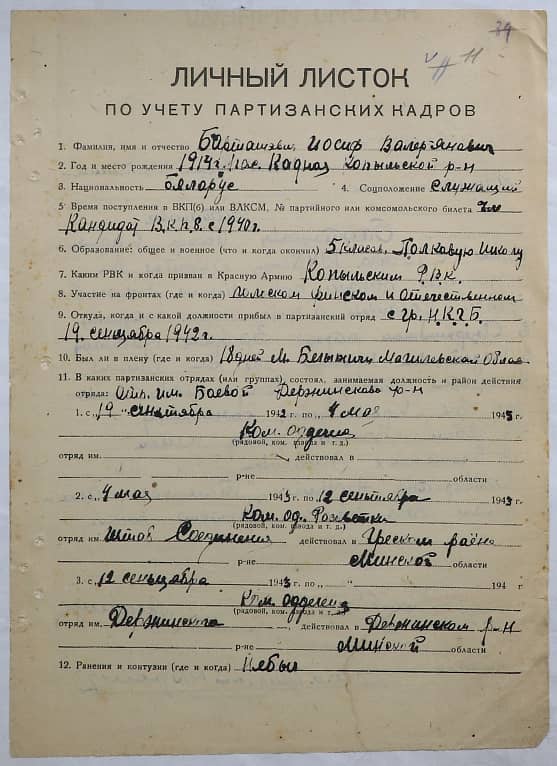 39
11
ЛИЧНЫЙ ЛИСТОК
ПО УЧЕТУ ПАРТИЗАНСКИХ КАДРОВ
1. Фамилия, имя и отчество Барташэвич Иосиф Валерьянович
2. Год и место рождения 1914 г. пос. Кадноз Копыльской р-н
3. Национальность бяларус 4. Соцположение служащий
5. Время поступления в ВКП(б) или ВЛКСМ, № партийного или комсомольского билета
Кандидат В.К.П.б. с 1940 г.
6. Образование: общее и военное (что и когда окончил) 5 класов, Полковую школу
7. Каким РВК и когда призван в Красную Армию Копыльским Р.В.К.
8. Участие на фронтах (где и когда) финском и Отечественном
9. Откуда, когда и с какой должности прибыл в партизанский отряд с гр. Н.К.Г.Б.
19. сентября 1942 г.
10. Был ли в плену (где и когда) 18 дней м. Магилевской облас
11. В каких партизанских отрядах (или группах), состоял, занимаемая должность и район действия
отряда: им. Боевой Держинского р-н
1. с „19" сентября 1942 г. по „4 мая 1943 г.
Ком. отделения
(рядовой, ком. взвода и т. д.)
отряд им. , действовал в
р-не области
2. с „4 мая 1943 г. по „12 сентября 1943
Ком. од. Розветки
(рядовой, ком. взвода и т. д.)
отряд им. штаб Соединения действовал в Уреском раёне
р-не Минской области
3. с „12 сеньцября 1943 г. по „ " 194 г
Ком. отделения
(рядовой, ком. взвода и т. д.)
отряд им. Держинского , действовал в Держинском р-н
р-не Минской области
12. Ранения и контузии (где и когда) Небыл